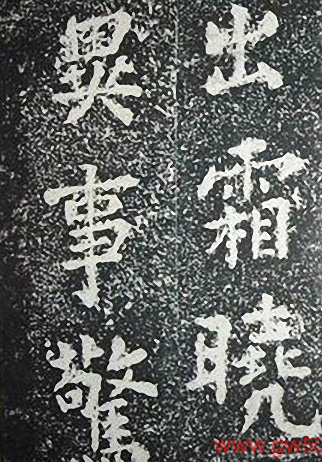 出霜曉
異事驚
www.gw50